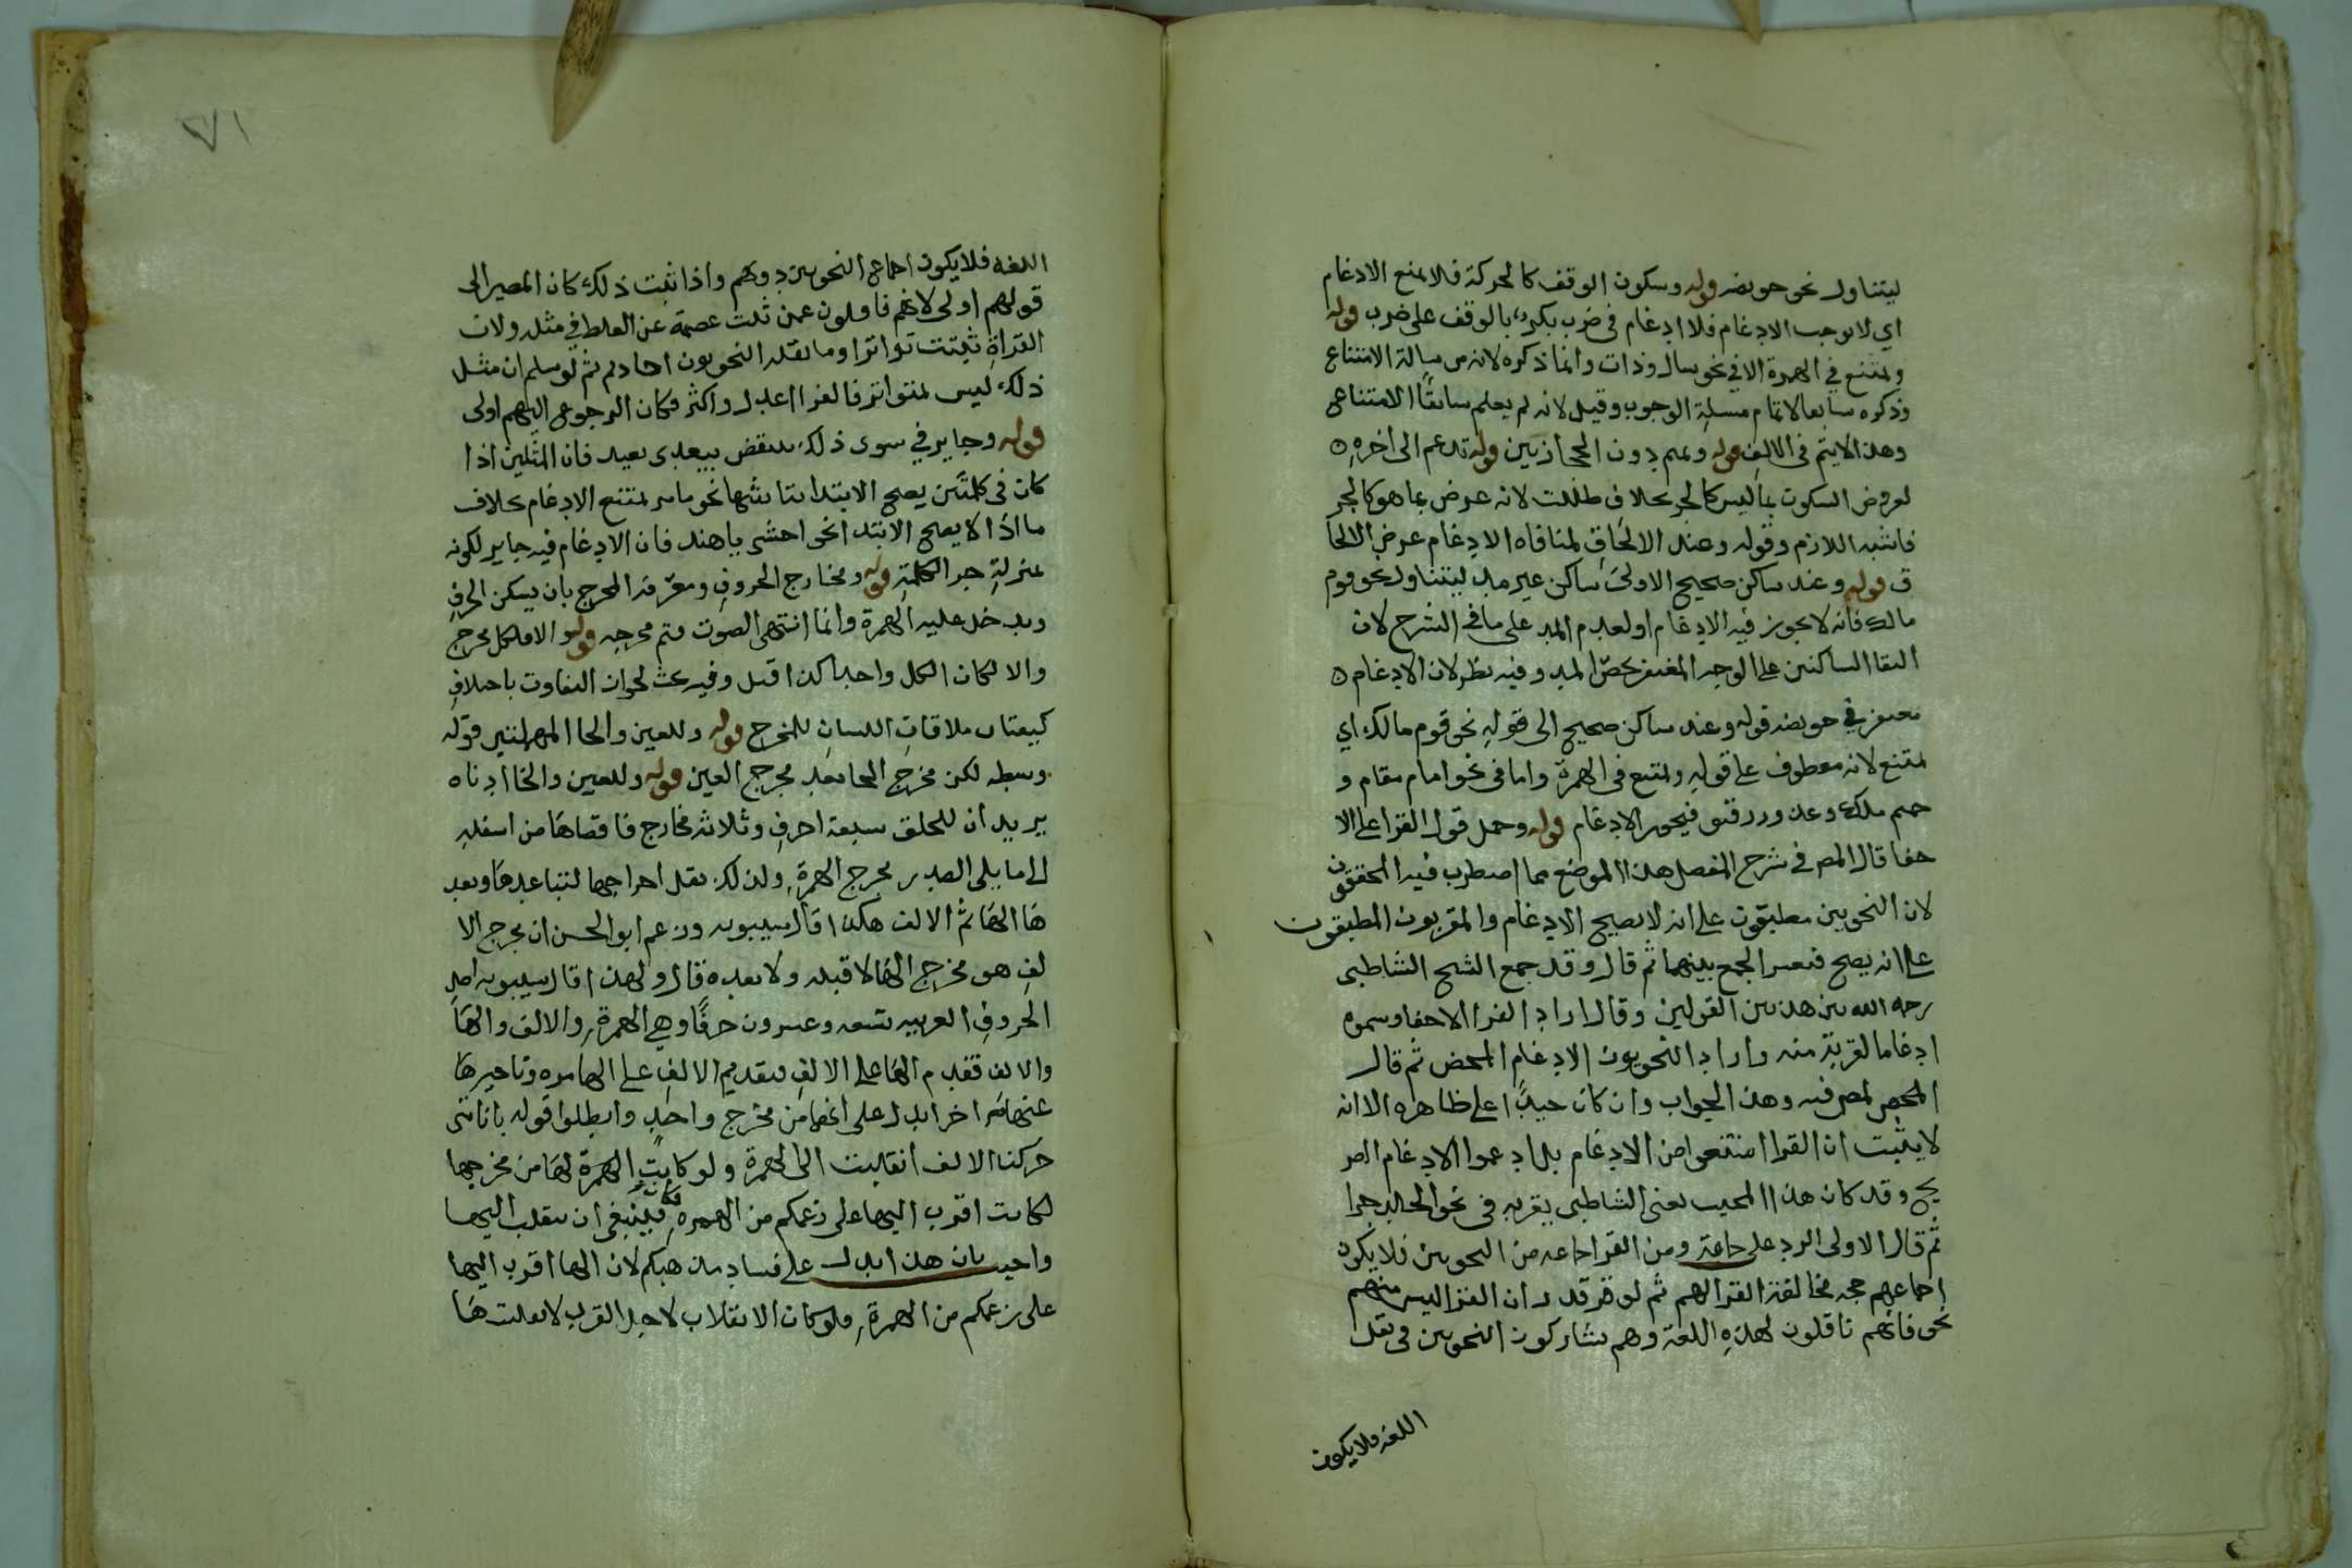 ليتناول نحو حويضه قوله وسكون الوقف كالحركة فلا يمنع الادغام
اي لا يوجب الادغام فلا ادغام في ضرب بكر بالوقف على ضرب قوله
ويمتنع في الهمزة الا في نحو سال وذات وانما ذكره لانه من مسالة الامتناع
وذكره سابقا لاتمام مسلة الوجوب وقيل لانه لم يعلم سابقا الامتناع
وهذا لا يتم في الالف قوله وتميم دون الحجازيين قوله تدغم الى اخره
لعروض السكون بما ليس كالجز بخلاف ظللت لانه عرض بما هو كالجز
فاشبه اللازم وقوله وعند الالحاق لمنافاه الادغام عرض الالحا
ق قوله وعند ساكن صحيح الاولى ساكن غير مد ليتناول نحو قوم
مالك فانه لا يجوز فيه الادغام او لعدم المد على ما في الشرح لان
التقا الساكنين على الوجه المغتفر يخص المد وفيه نظر لان الادغام
مغتفر في حويضه قوله وعند ساكن صحيح الى قوله نحو قوم مالك اي
يمتنع لانه معطوف على قوله ويمتنع في الهمزة واما في نحو امام مقام و
فيجوز الادغام قوله وحمل قول القرا على الا
خفا قال المصر في شرح المفصل هذا الموضع مما اضطرب فيه المحققون
لان النحويين مطبقون على انه لا يصح الادغام والمقريون المطبقون
على انه يصح فتعسر الجمع بينهما ثم قال وقد جمع الشيخ الشاطبي
رحمه الله بين هذين القولين وقال اراد القرا الاخفا وسموه
ادغاما لقربه منه واراد النحويون الادغام المحض ثم قال
وهذا الجواب وان كان جيدا على ظاهره الا انه
لا يثبت ان القرا امتنعوا من الادغام بل ادغموا الادغام الصر
يح وقد كان هذا المجيب يعني الشاطبي يقريه في نحو الخلد جزا
ثم قال الاولى الرد على جاعته ومن القرا جماعه من النحويين فلا يكون
اجماعهم حجه مخالفة القرا لهم ثم لو قدر ان القرا ليس منهم
نحو فانهم ناقلون لهذه اللغة وهم يشاركون النحويين في نقل
اللغه فلا يكون
٧١
اللغه فلا يكون اجماع النحويين دونهم واذا ثبت ذلك كان المصير الى
قولهم اولى لانهم ناقلون عمن ثبت عصمته عن الغلط في مثله ولان
القراة ثبتت تواترا وما نقله النحويون احاد ثم لو سلم ان مثل
ذلك ليس بمتواتر فالقرا اعدل واكثر فكان الرجوع اليهم اولى
قوله وجايز في سوى ذلك ينقض بيعدى بعيد فان المثلين اذا
كان في كلمتين يصح الابتدا بتا نحو مامر يمتنع الادغام بخلاف
ما اذا لا يصح الابتدا نحو اخشى ياهند فان الادغام فيه جايز لكونه
بمنزلة جز الكلمة قوله ومخارج الحروف ومعرفة المخرج بان يسكن الحرف
ويدخل عليه الهمزة وانما انتهى الصوت فثم مخرجه قوله والا فلكل مخرج
والا لكان الكل واحدا كذا قيل وفيه بحث لجواز التفاوت باختلاف
كيفيات ملاقات اللسان للمخرج قوله وللعين والحا المهملتين قوله
وسطه لكن مخرج الحا بعد مخرج العين قوله وللغين والخا ادناه
يريد ان للحلق سبعة احرف وثلاثة مخارج فاقصاها من اسفله
الى ما يلى الصدر مخرج الهمزة ولذلك نقل اخراجها لتباعدها وبعد
ها الها ثم الالف هكذا قال سيبويه وزعم ابو الحسن ان مخرج الا
لف هو مخرج الها لا قبله ولا بعده قال ولهذا قال سيبويه اصل
الحروف العربيه تسعه وعشرون حرفا وهي الهمزة والالف والها
والالف فقدم الها على الالف فتقديم الالف على الها مره وتاخيرها
عنها مره اخر ايدل على انها من مخرج واحد وابطلوا قوله بانا متى
حركنا الالف انقلبت الى الهمزة ولو كانت الهمزة لها من مخرجها
لكانت اقرب اليها على زعمكم من الهمزه فكان ينبغي ان تنقلب اليها
واجيب بان هذا يدل على فساد مذهبكم لان الها اقرب اليها
على زعمكم من الهمزة فلو كان الانقلاب لاجل القرب لانقلبت ها